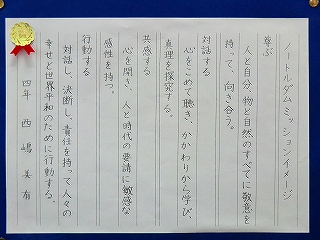 ノートルダム ミッションイメージ
尊ぶ
人と自分、物と自然のすべてに敬意を
持って、向き合う。
対話する
心をこめて聴き、かかわりから学び、
真理を探究する。
共感する
心を開き、人と時代の要請に敏感な
感性を持つ。
行動する
対話し、決断し、責任を持って人々の
幸せと世界平和のために行動する。
四年 西嶋美有